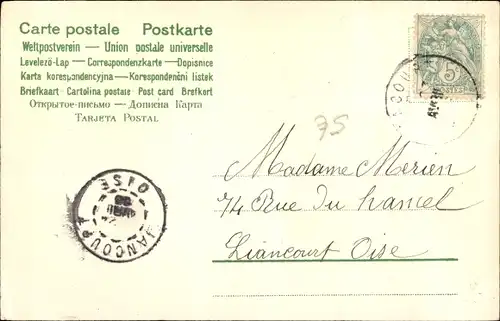 Carte postale Postkarte
Weltpostverein — Union postale universelle
Levelező-Lap — Correspondenzkarte — Dopisnice
Karta korespondencyjna — Korespondenční lístek
Briefkaart Cartolina postale Post card Brefkort
Открытое-письмо — Дописна Карта
TARJETA POSTAL
5c
POSTES
75
Madame Merien
74 Rue du hamel
Liancourt Oise
LIANCOURT
OISE